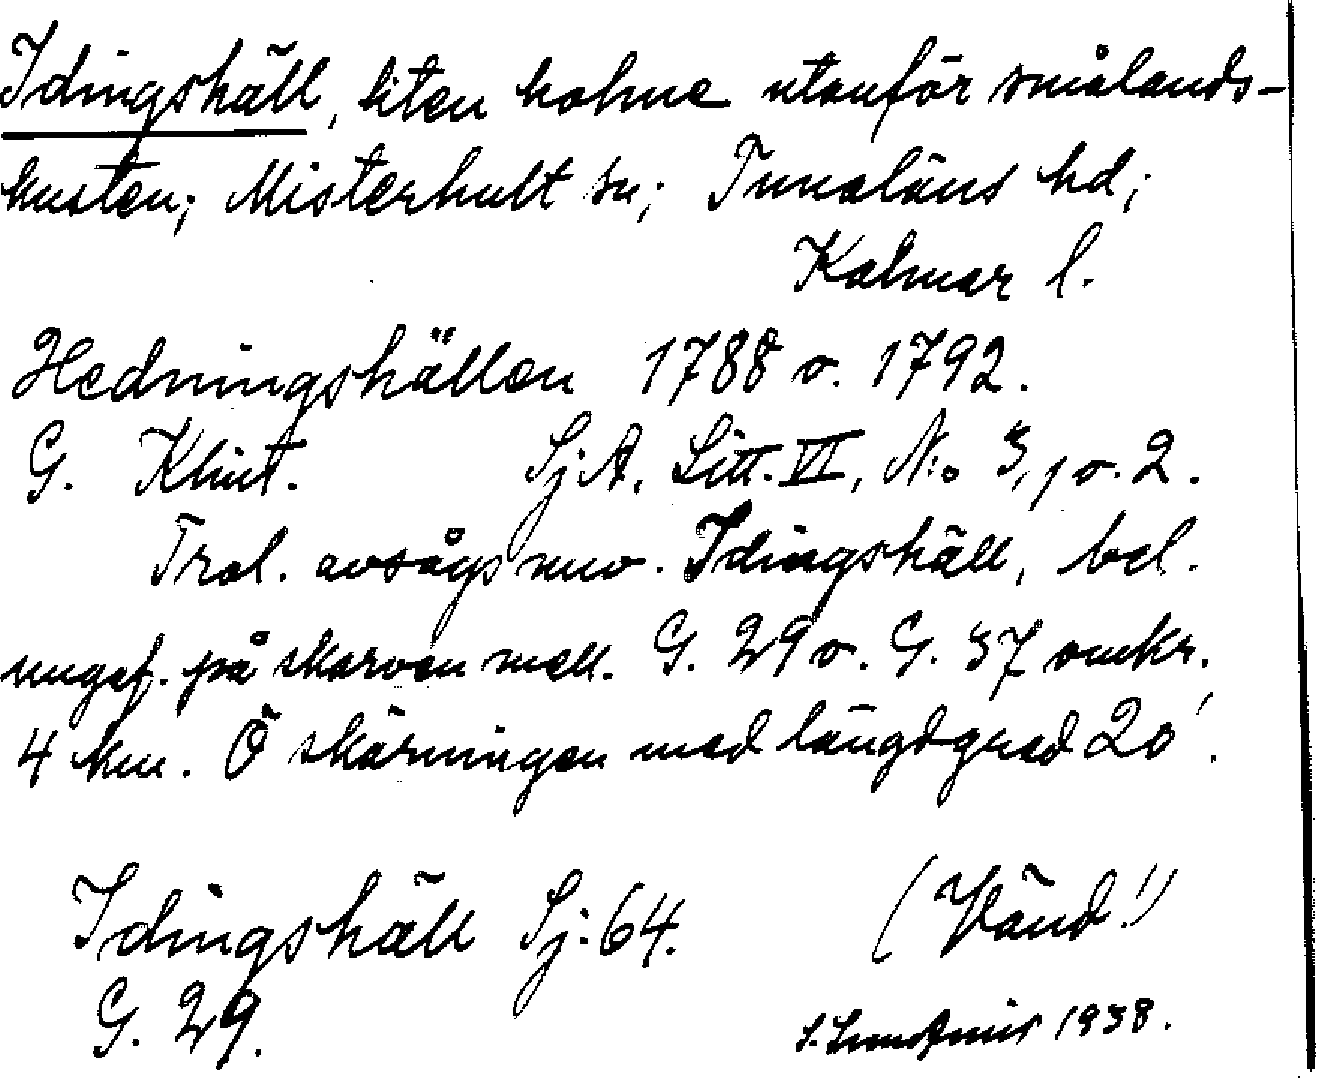 Idingshäll, liten holme utanför smålands-
kusten; Misterhult sn; Tunaläns hd;
Kalmar l.
Hedningshällen 1788 o. 1792.
G. Klint. Sj:A. Litt. VI, N:o 3, 1 o. 2.
Trol. avsågs nuv. Idingshäll, bel.
ungef. på skarven mell. G. 29 o. G. 37 omkr.
4 km. Ö skärningen med längdgrad 20'.
Idingshäll Sj:64. (Vänd!)
G. 29.
1938.